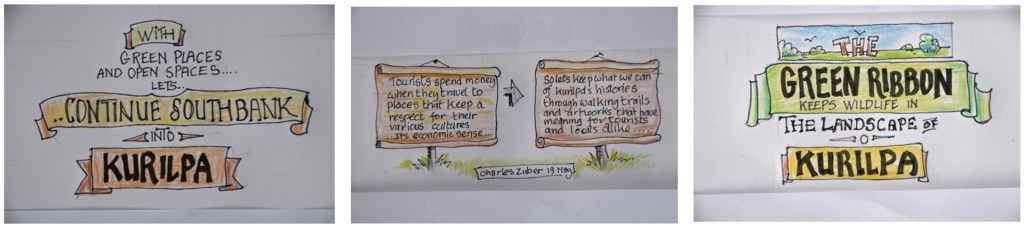 WITH
GREEN PLACES
AND OPEN SPACES....
LETS...
..CONTINUE SOUTHBANK
INTO
KURILPA
Tourists spend money
when they travel to
places that keep a
respect for their
various cultures
Its economic sense...
So lets keep what we can
of Kurilpa's histories
through walking trails
and artworks that have
meaning for tourists
and locals alike....
Charles Zuber 19 May
THE
GREEN RIBBON
KEEPS WILDLIFE IN
THE LANDSCAPE OF
KURILPA